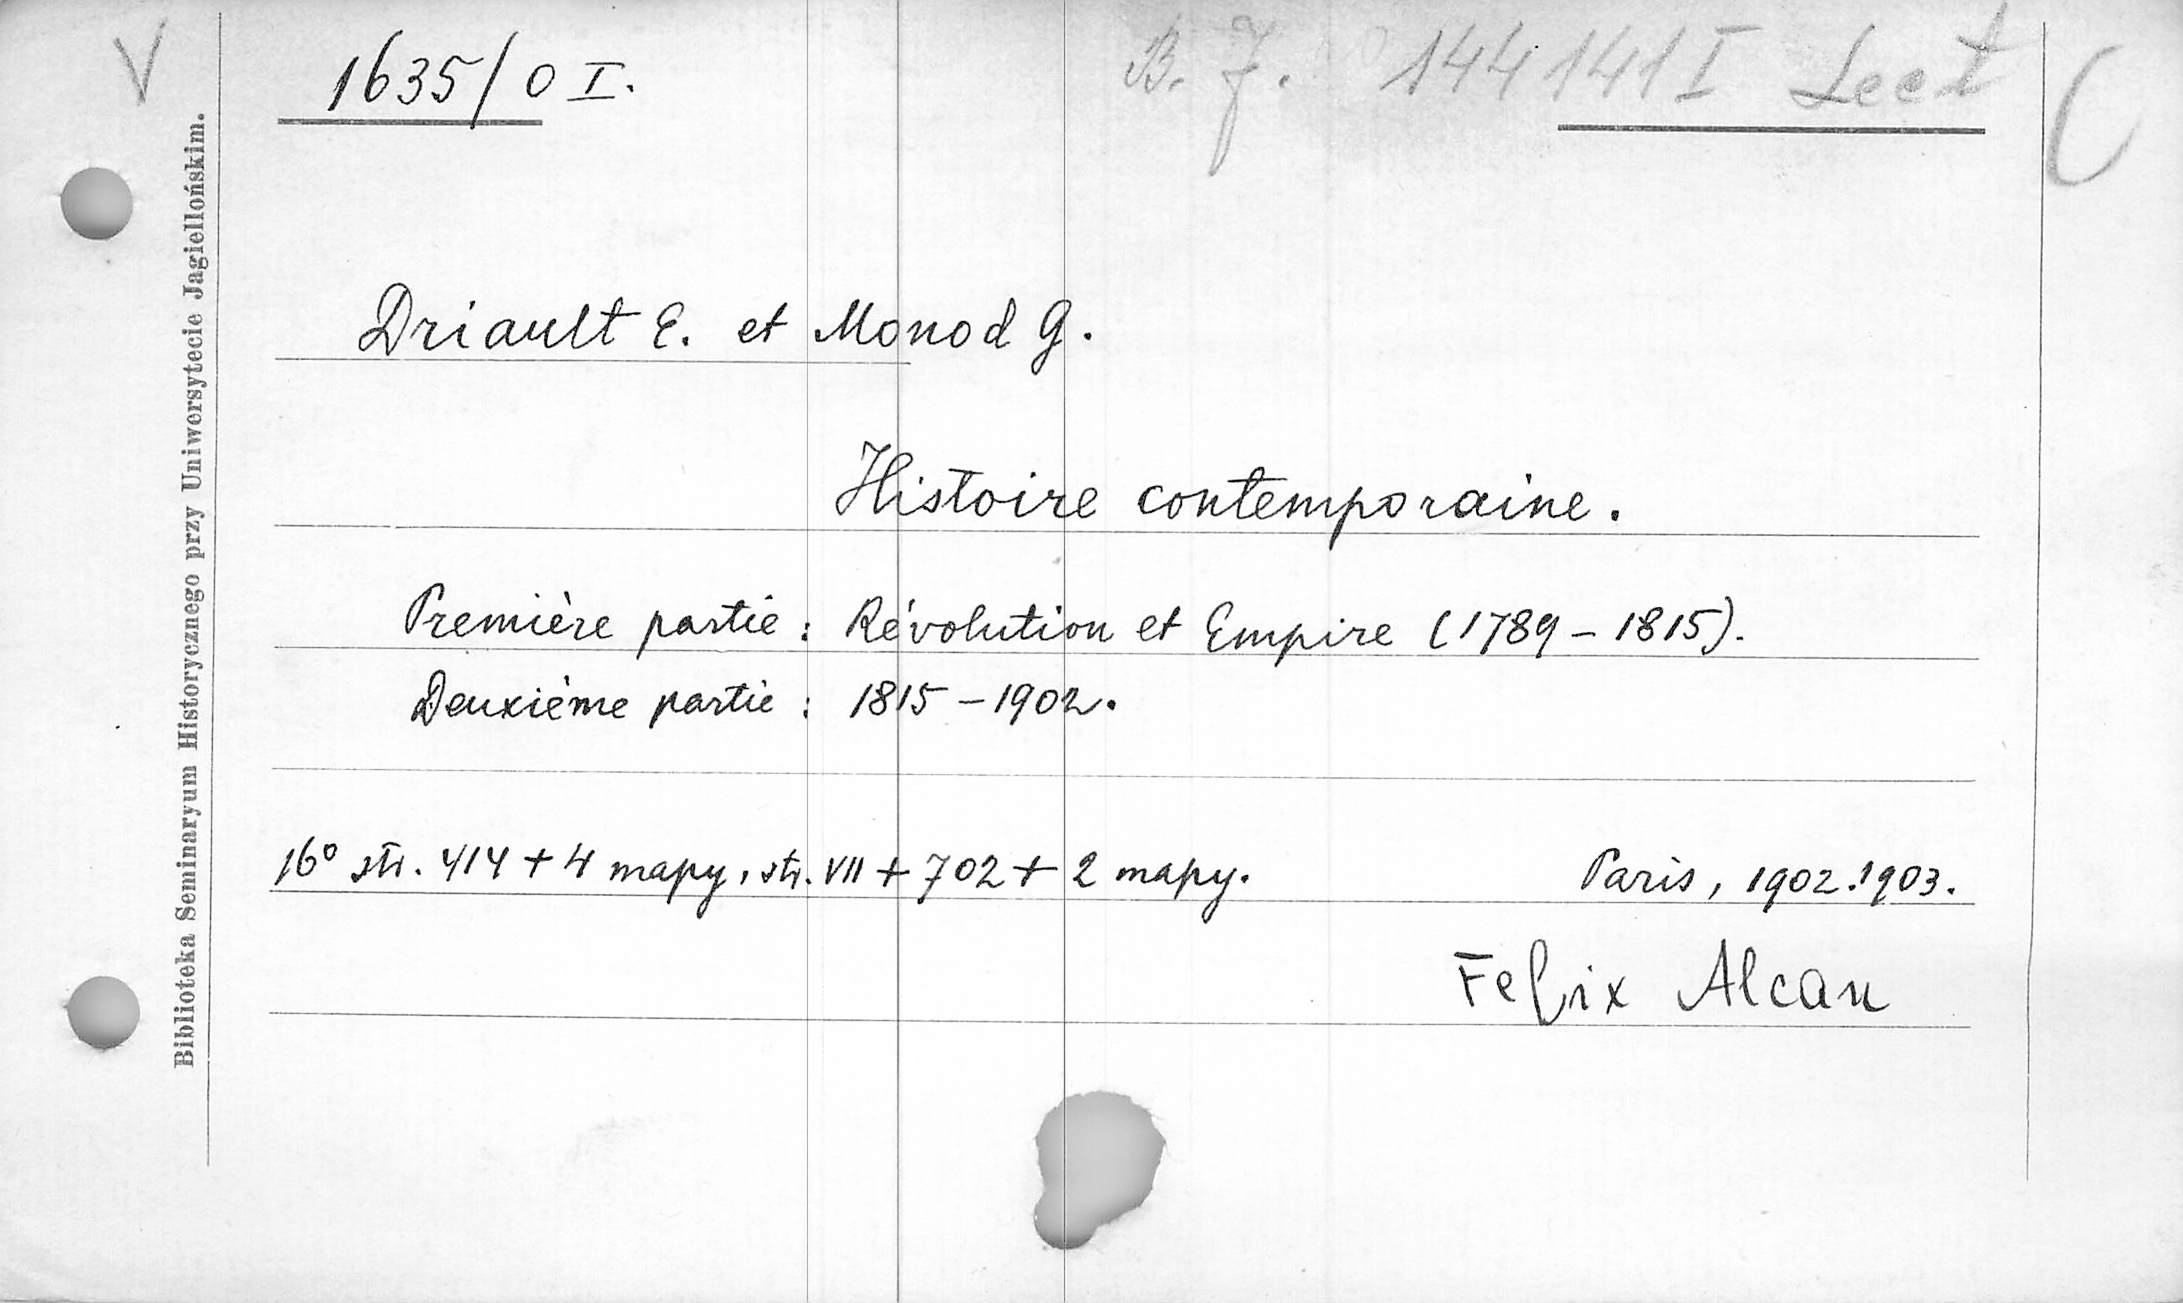 V
1635/O I.
B. J. 144141 I Lect
Biblioteka Seminaryum Historycznego przy Uniwersytecie Jagiellońskim.
Driault E. et Monod G.
Histoire contemporaine.
Première partie : Révolution et Empire (1789 – 1815).
Deuxième partie : 1815 – 1902.
16° str. 414 + 4 mapy, str. VII + 702 + 2 mapy. Paris, 1902.1903.
Felix Alcan